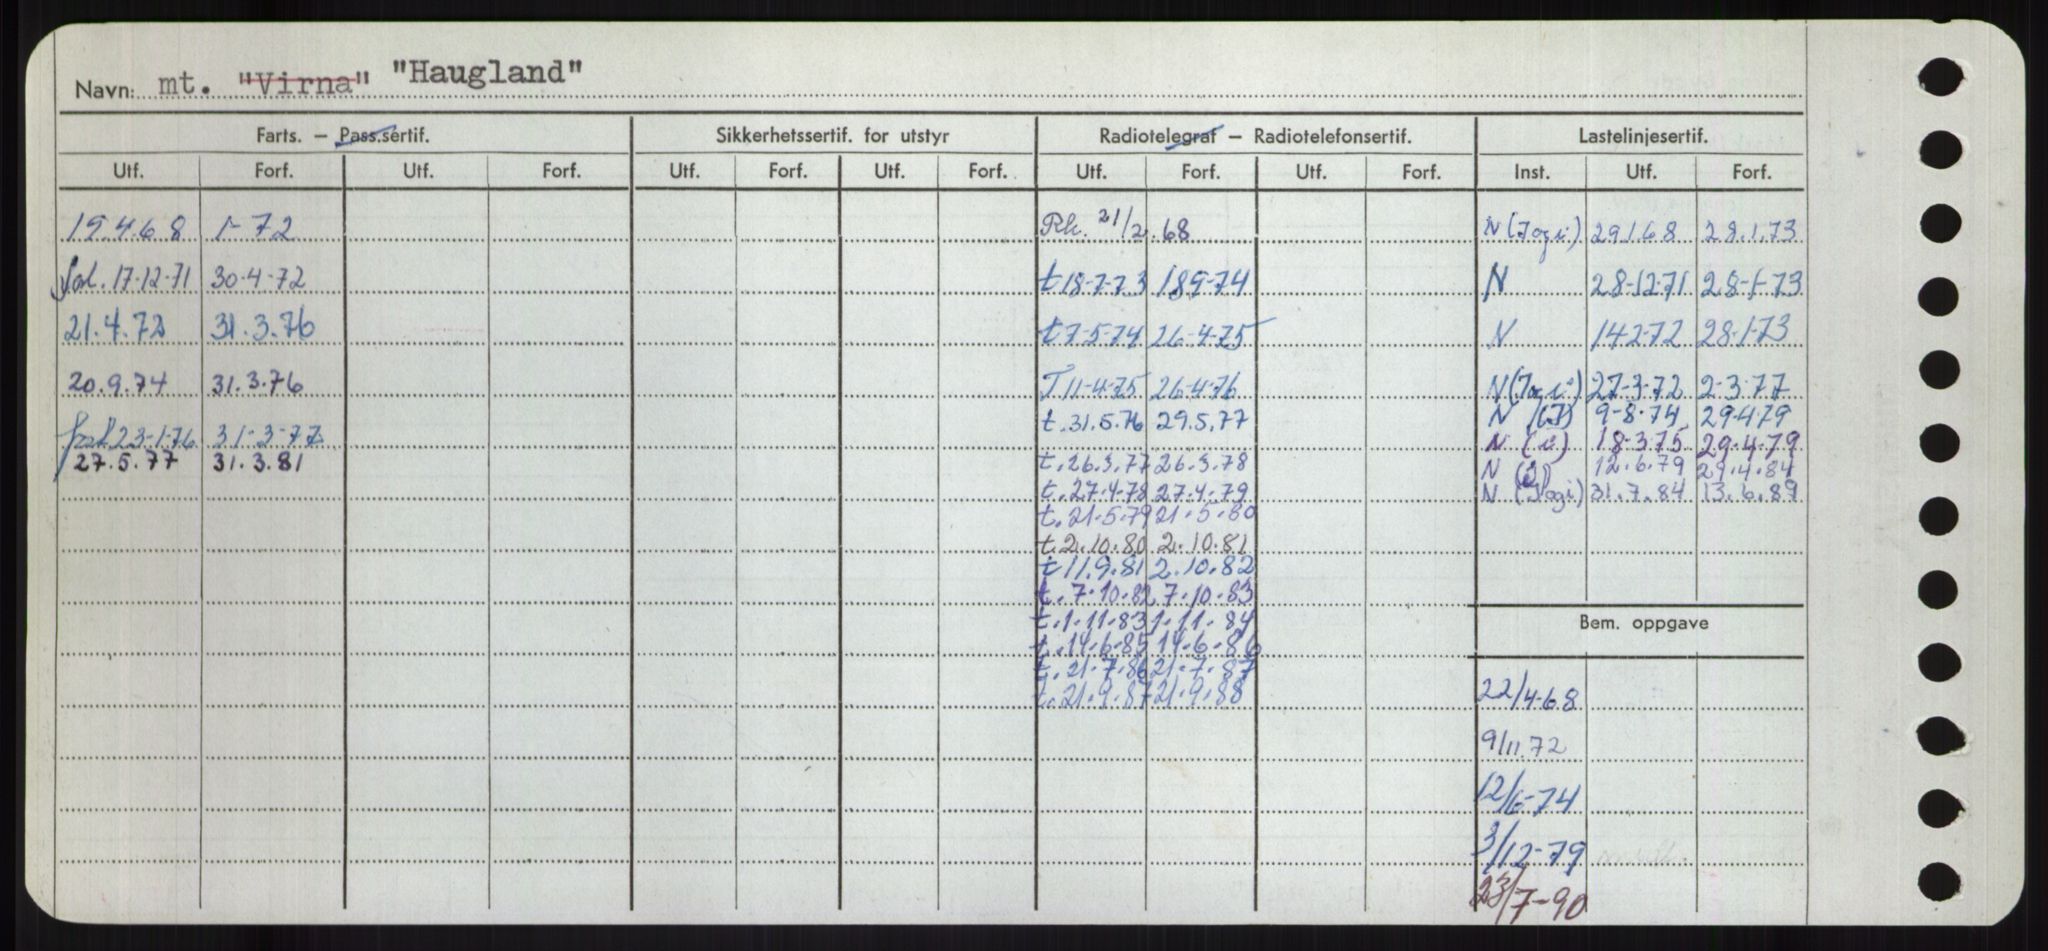 Navn: mt. "Virna" "Haugland"
Farts. — Pass.sertif. Sikkerhetssertif. for utstyr Radiotelegraf — Radiotelefonsertif. Lastelinjesertif.
Utf. Forf. Utf. Forf. Utf. Forf. Utf. Forf. Utf. Forf. Utf. Forf. Inst. Utf. Forf.
19.4.68 1-72 Rk. 21/2.68 N (Jogi) 29.1.68 28.1.73
17-12-71 30-4-72 t 18-7-73 189-74 N 28-12-71 28-1-73
21.4.72 31.3.76 t 7-5-74 26-4-75 N 142-72 28-1-73
20.9.74 31.3.76 T 11-4-75 26-4-76 N (Jogi) 27-3-72 2-3-77
t. 31.5.76 29.5.77 N (J) 9-8-74 29-4-79
23-1-76 31-3-77 N (i) 18-3-75 29-4-79
27.5.77 31.3.81 t. 26.3.77 26.3.78 N (J) 12.6.79 29.4.84
t. 27.4.78 27.4.79 N (Jogi) 31.7.84 13.6.89
t. 21.5.79 21.5.80
t. 2.10.80 2.10.81
t 11.9.81 2.10.82
t. 7.10.82 7.10.83
t. 1.11.83 1.11.84
Bem. oppgave
t. 14.6.85 14.6.86
t. 21.7.86 21.7.87
t. 21.9.87 21.9.88
22/4-68
9/11.72
12/6-74
3/12-79
23/7-90